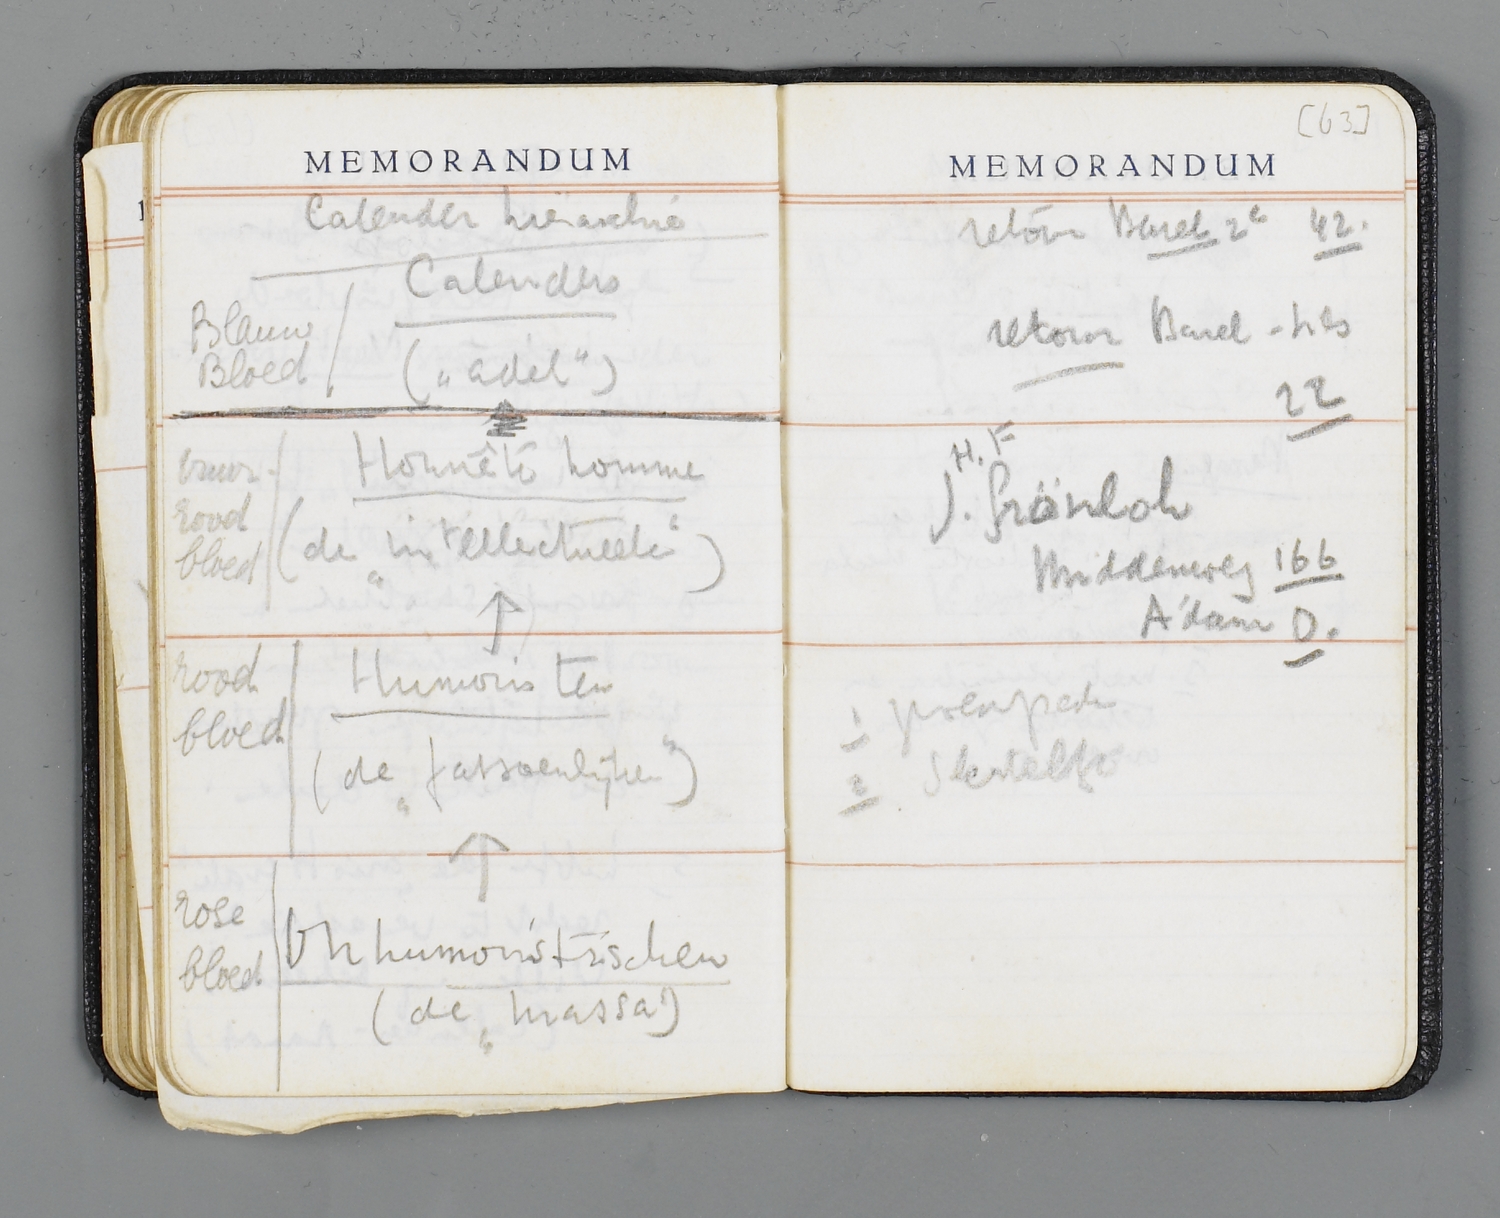 MEMORANDUM
Calender hiërarchie
Calenders
Blauw
Bloed
(„adel“)
vuur-
rood
bloed
Honnête homme
(de „intellectueele“)
rood
bloed
Humoristen
(de „fatsoenlijken“)
rose
bloed
Onhumoristischen
(de „massa“)
MEMORANDUM
[63]
retour Basel 2e 42.
retour Basel
22
H. F
J. Grönloh
Middenweg 166
A'dam O.
1
2